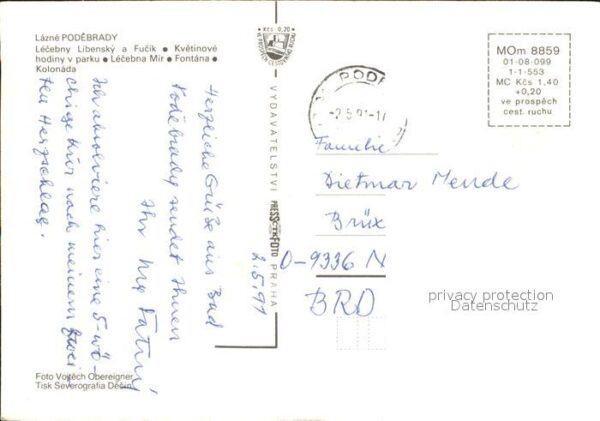 Lázně PODĚBRADY
Léčebny Libenský a Fučík • Květinové
hodiny v parku • Léčebna Mír • Fontána •
Kolonáda
Kčs 0,20
VE PROSPĚCH CESTOVNÍHO RUCHU
VYDAVATELSTVÍ PRESSFOTO PRAHA
MOm 8859
01-08-099
1-1-553
MC Kčs 1,40
+0,20
ve prospěch
cest. ruchu
PODĚ
-2.5.91-17
2.5.91
Herzliche Grüße aus Bad
Poděbrady sendet Ihnen
Ihr
Ich absolviere hier eine 5-wö-
chige Kur nach meinem zwei-
ten Herzschlag.
Familie
Dietmar Mende
Brüx
D-9336 N
BRD
privacy protection
Datenschutz
Foto Vojtěch Obereigner
Tisk Severografia Děčín